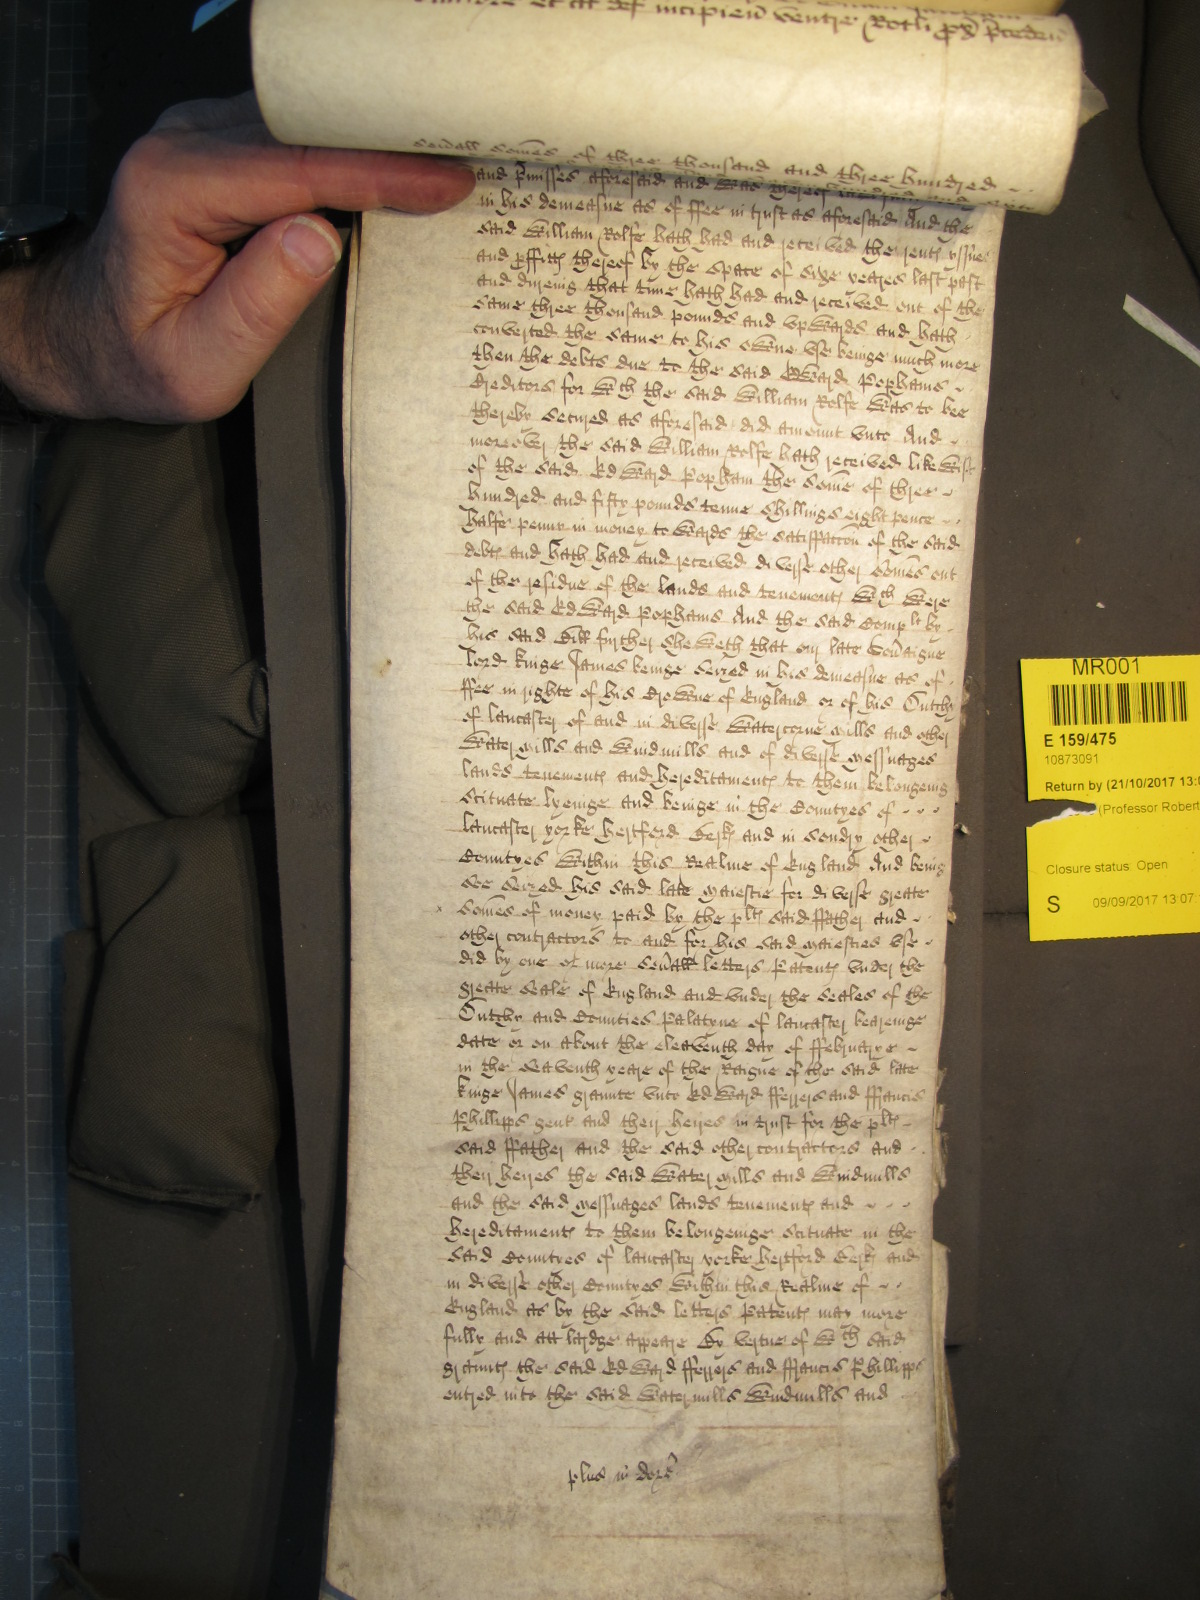 incipien ventre Rotli
seuall Somes of three thousand and three hundred
and pmisses aforesaid and was thereof
in his demeasne as of ffee in trust as aforesaid And the
said William Rolfe hath had and received the rents yssues
and pffitts thereof by the space of sixe yeares last past
and dureing that time hath had and received out of the
same three thousand pounds and vpwards and hath
converted the same to his owne vse beinge much more
then the debts due to the said Edward Pophams
Creditors for wch the said William Rolfe was to bee
thereby secured as aforesaid did amount vnto And
moreover the said William Rolfe hath received likewise
of the said Edward Popham the some of three
hundred and fifty pounds tenne shillings eight pence
halfe penny in money towards the satisfaccon of the said
debts and hath had and received diverse other Somes out
of the residue of the lands and tenements wch were
the said Edward Pophams And the said Complt by
his said Bill further sheweth that our late Soveraigne
Lord Kinge James beinge seized in his demeasne as of
ffee in righte of his Crowne of England or of his Dutchy
of Lancaster of and in diverse Watercorne mills and other
Water mills and Windmills and of diverse messuages
lands tenements and hereditaments to them belongeing
scituate lyeinge and beinge in the Countyes of
Lancaster yorke hertford Berks and in sondry other
Countyes within this Realme of England And being
soe seized his said late Maiestie for diverse greate
Somes of money paid by the plts said ffather and
other contractors to and for his said Maiesties vse
did by one or more seuall letters Patents vnder the
greate Seale of England and vnder the Seales of the
Dutchy and Counties Palatyne of Lancaster beareinge
date or on about the eleaventh day of ffebruarye
in the Seaventh yeare of the Raigne of the said late
Kinge James graunte vnto Edward fferrers and ffrancis
Phillipps gent and their heires in trust for the plts
said ffather and the said other contractors and
their heires the said Water mills and Windmills
and the said messuages lands tenements and
hereditaments to them belongeinge scituate in the
said Countyes of Lancaster yorke hertford Berks and
in diverse other Countyes within this Realme of
England as by the said letters Patents may more
fully and att lardge appeare By vertue of wch said
graunts the said Edward fferrers and ffrancis Phillipps
entred into the said Watermills Windmills and
plus in dorso
MR001
E 159/475
10873091
Return by (21/10/2017 13:0
(Professor Robert
Closure status: Open
S 09/09/2017 13:07